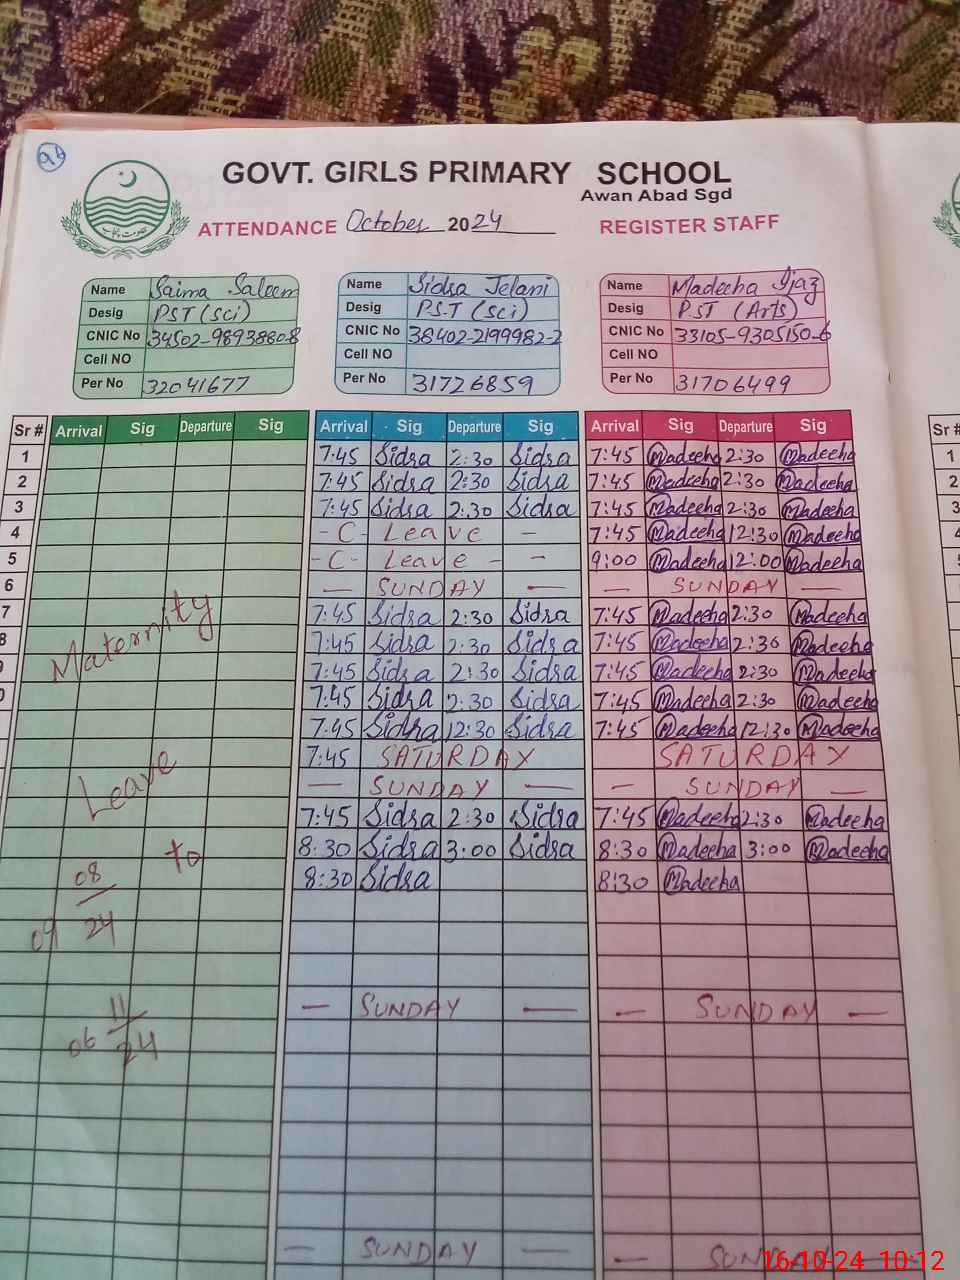 GOVT. GIRLS PRIMARY SCHOOL
Awan Abad Sgd
ATTENDANCE October 2024 REGISTER STAFF
Name Saima Saleem Name Sidra Jelani Name Madeeha Ijaz
Desig PST (Sci) Desig P.S.T (Sci) Desig PST (Arts)
CNIC No 34502-9893880-8 CNIC No 38402-2199982-2 CNIC No 33105-9305150-6
Cell NO Cell NO Cell NO
Per No 32041677 Per No 31726859 Per No 31706499
Sr # Arrival Sig Departure Sig Arrival Sig Departure Sig Arrival Sig Departure Sig Sr #
1 7:45 Sidra 2:30 Sidra 7:45 Madeeha 2:30 Madeeha 1
2 7:45 Sidra 2:30 Sidra 7:45 Madeeha 2:30 Madeeha 2
3 7:45 Sidra 2:30 Sidra 7:45 Madeeha 2:30 Madeeha 3
4 - C - Leave - 7:45 Madeeha 12:30 Madeeha 4
5 - C - Leave - - 9:00 Madeeha 12:00 Madeeha 5
6 — SUNDAY — — SUNDAY —
7 7:45 Sidra 2:30 Sidra 7:45 Madeeha 2:30 Madeeha
8 7:45 Sidra 2:30 Sidra 7:45 Madeeha 2:30 Madeeha
7:45 Sidra 2:30 Sidra 7:45 Madeeha 2:30 Madeeha
7:45 Sidra 2:30 Sidra 7:45 Madeeha 2:30 Madeeha
7:45 Sidra 12:30 Sidra 7:45 Madeeha 12:30 Madeeha
7:45 SATURDAY SATURDAY
— SUNDAY — — SUNDAY —
7:45 Sidra 2:30 Sidra 7:45 Madeeha 2:30 Madeeha
8:30 Sidra 3:00 Sidra 8:30 Madeeha 3:00 Madeeha
8:30 Sidra 8:30 Madeeha
Maternity
Leave
to
09 08/24
— SUNDAY — — SUNDAY —
06 11/24
— SUNDAY — — SUNDAY
16-10-24 10:12